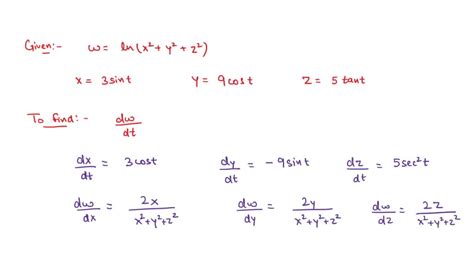 Given:- w = ln(x² + y² + z²)
x = 3sint y = 9cost z = 5 tant
To find:- dw/dt
dx/dt = 3cost dy/dt = -9sint dz/dt = 5sec²t
dw/dx = 2x/(x²+y²+z²) dw/dy = 2y/(x²+y²+z²) dw/dz = 2z/(x²+y²+z²)